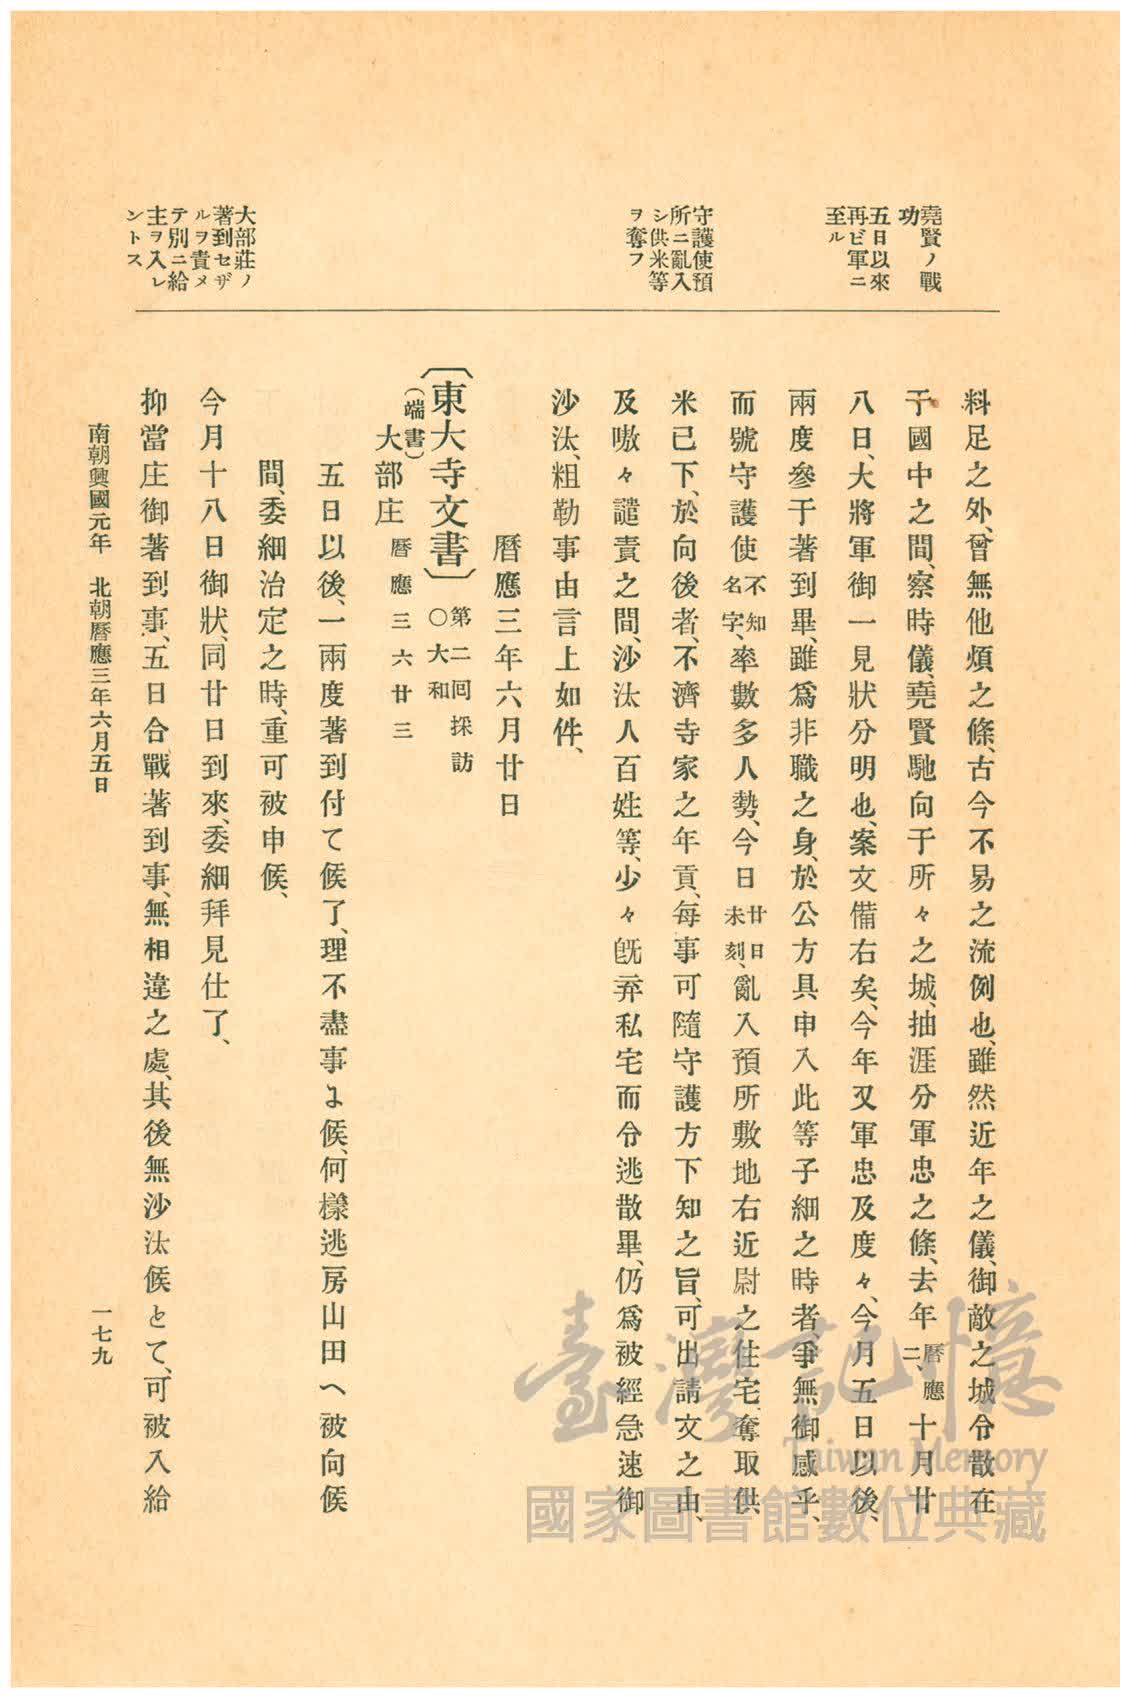 堯賢ノ戰
功
五日以來
再ビ軍ニ
至ル
守護使預
所ニ亂入
シ供米等
ヲ奪フ
大部莊ノ
著到セザ
ルヲ責メ
テ別ニ給
主ヲ入レ
ントス
料足之外、曾無他煩之條、古今不易之流例也、雖然近年之儀、御敵之城令散在
于國中之間、察時儀、堯賢馳向于所々之城、抽涯分軍忠之條、去年曆應二、十月廿
八日、大將軍御一見狀分明也、案文備右矣、今年又軍忠及度々、今月五日以後、
兩度參于著到畢、雖爲非職之身、於公方具申入此等子細之時者爭無御感乎、
而號守護使不知名字、率數多人勢、今日廿日未刻、亂入預所敷地右近尉之住宅、奪取供
米已下、於向後者、不濟寺家之年貢、每事可隨守護方下知之旨、可出請文之由、
及嗷々譴責之間、沙汰人百姓等、少々旣弃私宅而令逃散畢、仍爲被經急速御
沙汰、粗勒事由言上如件、
曆應三年六月廿日
〔東大寺文書〕○大和第二回採訪
(端書)
大部庄曆應三六廿三
五日以後、一兩度著到付て候了、理不盡事ょ候、何樣逃房山田へ被向候
間、委細治定之時、重可被申候、
今月十八日御狀、同廿日到來、委細拜見仕了、
抑當庄御著到事、五日合戰著到事、無相違之處、其後無沙汰候とて、可被入給
南朝興國元年 北朝曆應三年六月五日
一七九
臺灣記憶
Taiwan Memory
國家圖書館數位典藏